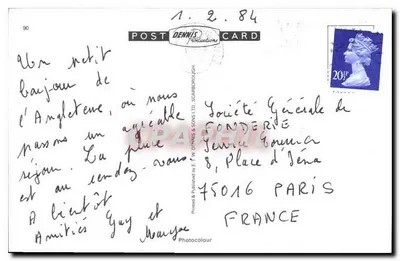 1. 2. 84
90
POST CARD
DENNIS
Productions
20½P
Un petit
bonjour de
l'Angleterre, où nous
passons un agréable
séjour. La pluie
est au rendez-vous
A bientôt
Amitiés Guy et
Société Générale de
FONDERIE
8, Place d'Iéna
75016 PARIS
FRANCE
Printed & Published by E. T. W. DENNIS & SONS LTD. SCARBOROUGH
Photocolour